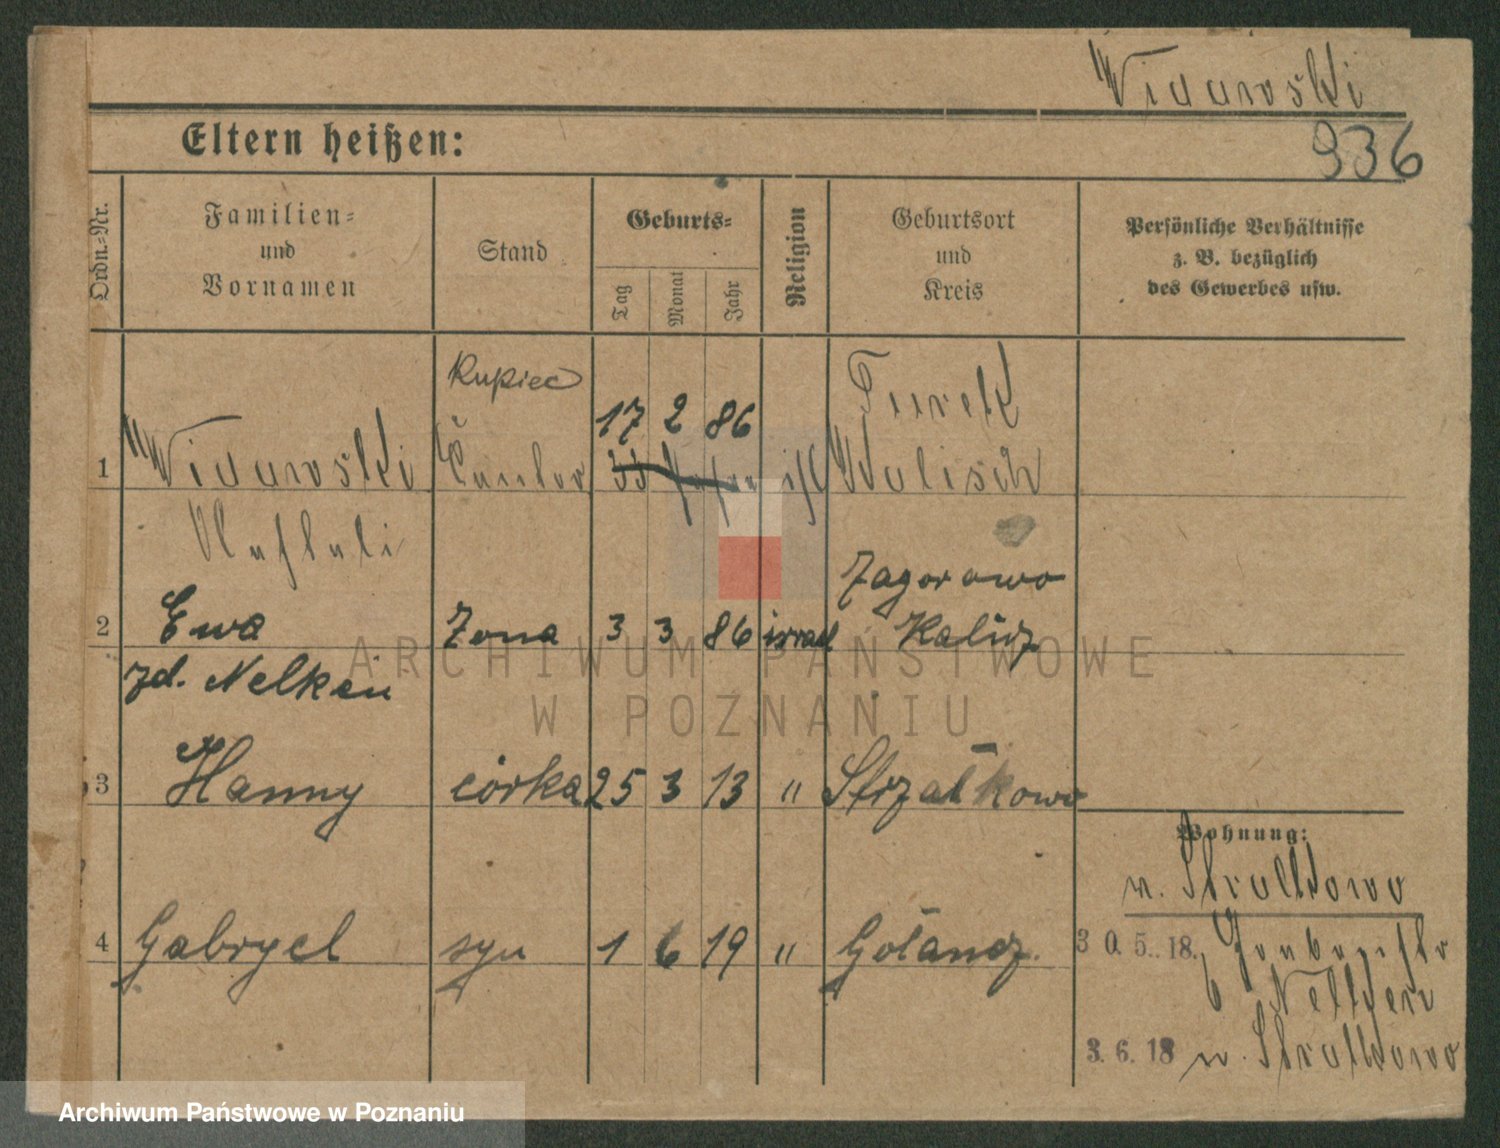 Widawski
936
Eltern heißen:
Ordn.=Nr.
Familien=
und
Vornamen
Stand
Geburts=
Tag
Monat
Jahr
Religion
Geburtsort
und
Kreis
Persönliche Verhältnisse
z. B. bezüglich
des Gewerbes usw.
Kupiec
17 2 86
Turek
1 Widawski Cantor 33 isr Kalisch
Naftali
Zagorowo
2 Ewa Zona 3 3 86 israel Kalisz
zd. Nelken
3 Hanny córka 25 3 13 " Strzałkowo
Wohnung:
n. Stralkowo
4 Gabryel syn 1 6 19 " Gołańcz.
30.5.18.
Nelken
3.6.18 n. Stralkowo
ARCHIWUM PAŃSTWOWE
W POZNANIU
Archiwum Państwowe w Poznaniu